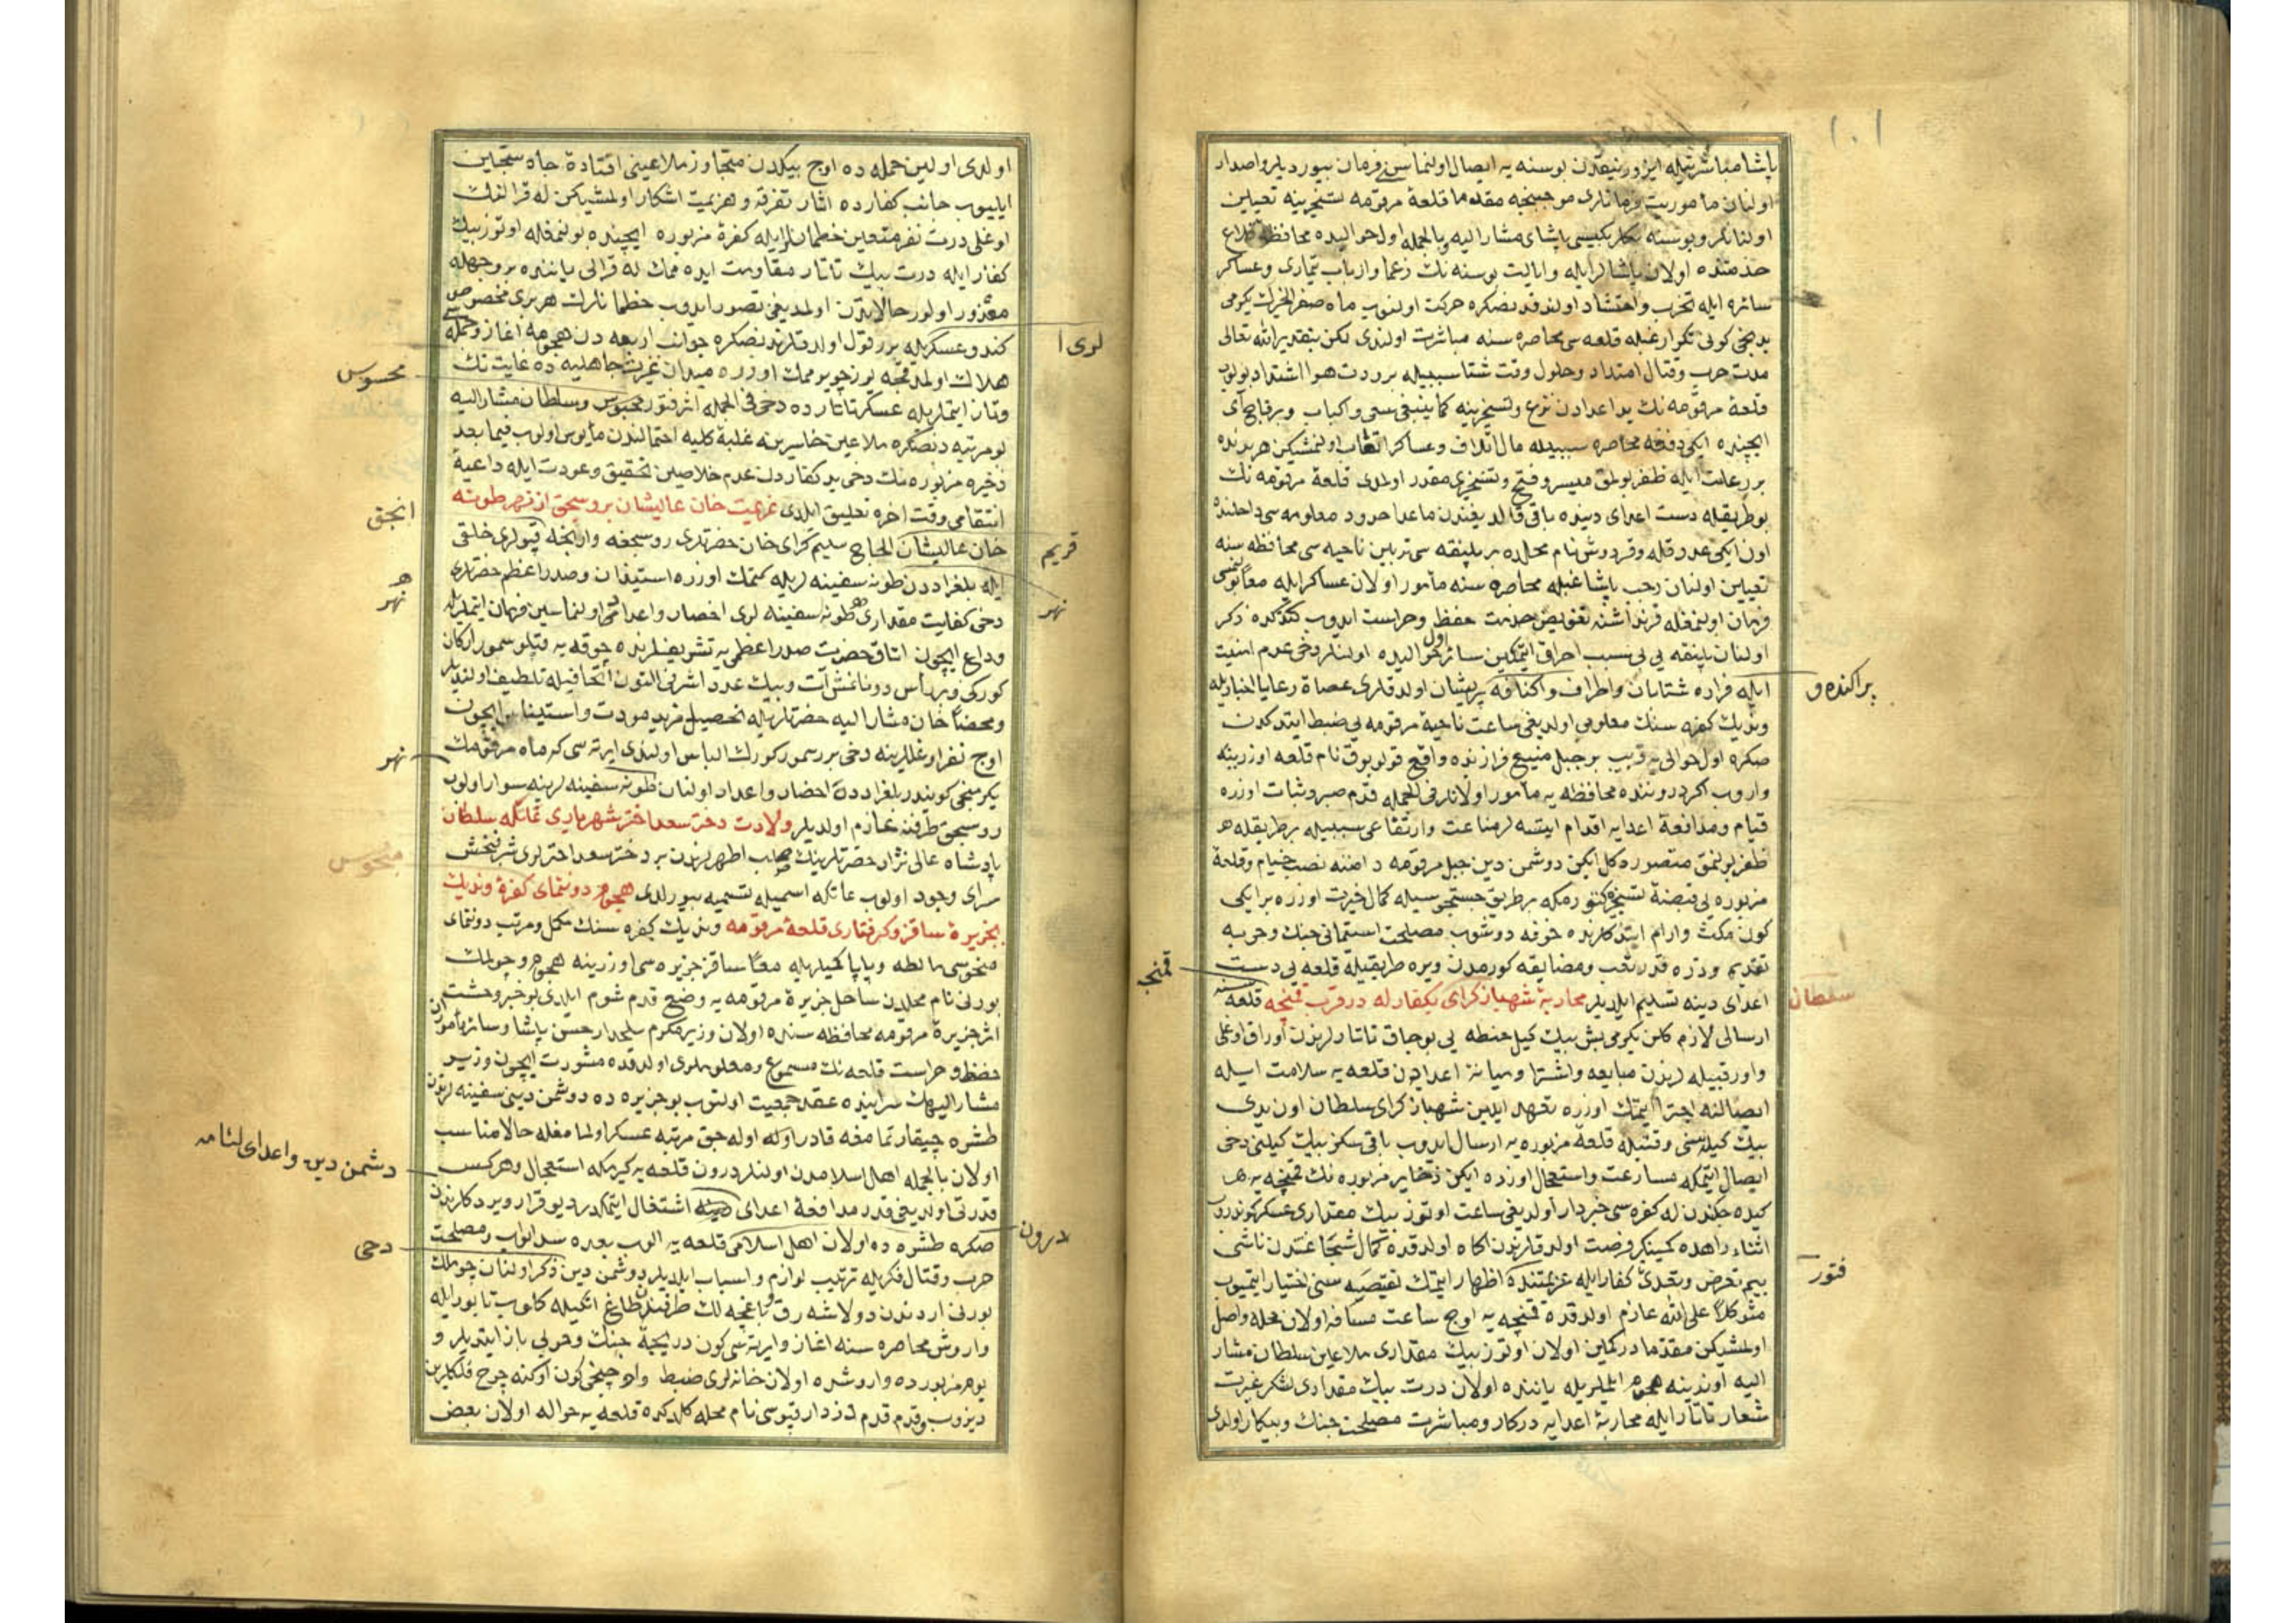 ١٠١
پاشا مباشرتيله ايزورنيقدن بوسنه يه ايصال اولنماسن فرمان بيورديلر واصدار
اولنان مأموريت فرمانلرى موجبنجه مقدما قلعۀ مرقومه تسخيرينه تعيين
اولنانلر و بوسنه بكلربكيسى پاشاى مشار اليه وبالجمله اول حواليده محافظۀ قلاع
خدمتنده اولان پاشالر ايله وايالت بوسنه نك زعما وارباب تيمارى وعساكر
سائره ايله تحزب واحتشاد اولندقدنصكره حركت اولنوب ماه صفر الخيرك يكرمى
يدنجى كونى تكرار غبله قلعه سى محاصره سنه مباشرت اولندى لكن بتقدير الله تعالى
مدت حرب وقتال امتداد وحلول وقت شتا سببيله برودت هوا اشتداد بولوب
قلعۀ مرقومه نك يد اعدادن نزع وتسخيرينه كما ينبغى سعى واكباب وبرقاج آى
ايچنده ايكى دفعه محاصره سببيله مال اتلاف وعساكر اتعاب اولنمشيكن هر برنده
بررعلت ايله ظفر بولمق ميسر وفتح وتسخيرى مقدر اولمدى قلعۀ مرقومه نك
بو طريقيله دست اعداى دينده باقى قالديغندن ماعدا حدود معلومه سى داخلنده
اون ايكى عدد قله وقردوش نام محلده بر پلنقه سى تربين ناحيه سى محافظه سنه
تعيين اولنان رجب پاشا غبله محاصره سنه مأمور اولان عساكر ايله معاً
فرمان اولنمغله قرنداشنه تفويض خدمت حفظ وحراست ايدوب كتدكده ذكر
اولنان پلنقه يى بى سبب احراق ايتمكين سائر اول حواليده اولنلر دخى عدم امنيت
ايله فراره شتابان واطراف واكنافه پريشان اولدقلرى عصاة رعايا اخباريله
ونديك كفره سنك معلومى اولديغى ساعت ناحيۀ مرقومه يى ضبط ايتدكدن
صكره اول حوالى يه قريب بر جبل منيع فرازنده واقع قولوبوق نام قلعه اوزرينه
واروب اكرچه درونده محافظه يه مأمور اولانلر فى الجمله قدم صبر وثبات اوزره
قيام ومدافعۀ اعدايه اقدام ايتسه لر مناعت وارتفاعى سببيله بر طريقله هر
ظفر بولنمق متصور دكل ايكن دوشمن دين جبل مرقومه دامننه نصب خيام وقلعۀ
مزبوره يى قبضۀ تسخيره كتورمكه بر طريق جستجوسيله كمال حيرت اوزره بر ايكى
كون مكث وارام ايتدكلرنده خوفه دوشوب مصلحت استمانى جنك وحربه
تقديم وذره قدر تعب ومضايقه كورمدن ويره طريقيله قلعه يى دست
اعداى دينه تسليم ايلديلر محاربۀ شهباز كراى بكفار له در قرب قمنچه قلعه سنه
ارسالى لازم كلن يكرمى بش بيك كيل حنطه يى بوجاق تاتارلرندن اوراق اوغلى
واور قبيله لرندن مبايعه واشترا وميانۀ اعدادن قلعه يه سلامت ايله
ايصالنه اجترا ايتمك اوزره تعهد ايلين شهباز كراى سلطان اون يدى
بيك كيله سنى وقتيله قلعۀ مزبوره يه ارسال ايدوب باقى سكز بيك كيلنى دخى
ايصال ايتمكه مسارعت واستعجال اوزره ايكن ذخاير مزبوره نك قمنچه يه
كيده جكندن له كفره سى خبردار اولديغى ساعت اوتوز بيك مقدارى عسكر كوندروب
اثناء راهده كمينكير فرصت اولدقلرندن اكاه اولدقده كمال شجاعتدن ناشى
بيم تعرض وتعدئ كفار ايله عزيمتنده اظهار ايتمك نقيصه سنى اختيار ايتميوب
متوكلاً على الله عازم اولدقده قمنچه يه اوچ ساعت مسافه اولان محله واصل
اولمشيكن مقدما دركمين اولان اوتوز بيك مقدارى ملاعين سلطان مشار
اليه اوزرينه هجوم ايلملريله ياننده اولان درت بيك مقدارى لشكر غيرت
شعار تاتار ايله محاربۀ اعدايه دركار ومباشرت مصلحت جنك وپيكار اولدى
پراكنده و
قمنچه
سلطان
فتور
اولدى اولين حمله ده اوچ بيكدن متجاوز ملاعينى افتادۀ چاه سجين
ايليوب جانب كفارده اثار تفرقه وهزيمت اشكار اولمشيكن له قرالنك
اوغلى درت نفر متعين خطمانلر ايله كفرۀ مزبوره ايچنده بولنمغله اوتوز بيك
كفار ايله درت بيك تاتار مقاومت ايده ممك له قرالى ياننده بر وجهله
معذور اولور حالاتدن اولمديغى تصور ايدوب خطمانلرك هر برى مخصوص
كندو عسكريله برر قول اولدقلرندنصكره جوانب اربعه دن هجومه اغاز وجمله سى
هلاك اولمدقچه يوز چويرممك اوزره ميدان غيرت جاهليه ده غايت تك
وتاز ايتملريله عسكر تاتارده دخى فى الجمله اثر فتور محبوس وسلطان مشار اليه
بو مرتبه دنصكره ملاعين خاسرينه غلبۀ كليه احتمالندن مأيوس اولوب فيما بعد
ذخيره مزبوره نك دخى يد كفاردن عدم خلاصين تحقيق وعودت ايله داعيۀ
انتقامى وقت اخره تعليق ايلدى عزيمت خان عاليشان بروسجق از نهر طونه
خان عاليشان الحاج سليم كراى خان حضرتلرى روسجغه وارنجه قپولرى خلقى
ايله بلغراددن طونه سفينه لريله كتمك اوزره استيذان وصدراعظم حضرتلرى
دخى كفايت مقدارى طونه سفينه لرى احضار واعداد اولنماسين فرمان ايتملريله
وداع ايچون اتاق حضرت صدراعظمى يه تشريفلرنده چوقه يه قپلو سمور اركان
كوركى وبر رأس دونانمش آت وبيك عدد اشرفى التون اتحافيله تلطيف اولنديلر
ومحضاً خان مشار اليه حضرتلريله تحصيل مزيد مودت واستيناس ايچون
اوچ نفر اوغللرينه دخى برر سمور كورك الباس اولندى ايرته سى كه ماه مرقومك
يكرمنجى كونيدر بلغرادده احضار واعداد اولنان طونه سفينه لرينه سوار اولوب
روسجق طرفنه عازم اولديلر ولادت دختر سعد اختر شهريارى عاتكه سلطان
پادشاه عالى نژاد حضرتلرينك صلب اطهرلرندن بر دختر سعد اخترلرى شرفبخش
سراى وجود اولوب عاتكه اسميله تسميه بيورلدى هجوم دونتماى كفرۀ ونديك
بجزيرۀ ساقز وكرفتارى قلعۀ مرقومه ونديك كفره سنك مكمل ومرتب دونتماى
منحوسى مالطه وپاپا كميلريله معاً ساقز جزيره سى اوزرينه هجوم وچولمك
بورنى نام محلدن ساحل جزيرۀ مرقومه يه وضع قدم شوم ايلدى بو خبر وحشت
اثر جزيرۀ مرقومه محافظه سنده اولان وزير مكرم سلحدار حسن پاشا وسائر مأمور
حفظ وحراست قلعه نك مسموع ومعلوملرى اولدقده مشورت ايچون وزير
مشار اليهك سراينده عقد جمعيت اولنوب بو جزيره ده دوشمن دينى سفينه لرندن
طشره چيقارتمامغه قادر اوله جق مرتبه عسكر اولمامغله حالا مناسب
اولان بالجمله اهل اسلامدن اولنلر درون قلعه يه كيرمكه استعجال وهركس
قدرتى اولديغى قدر مدافعۀ اعداى دينه اشتغال ايتمكدر ديو قرار ويردكلرندن
صكره طشره ده اولان اهل اسلامى قلعه يه الوب بعده سد ابواب ومصلحت
حرب وقتال فكريله ترتيب لوازم واسباب ايلديلر دوشمن دين ذكر اولنان چولمك
بورنى اردندن دولاشه رق وباغچه لك طرفيندن طاغ اتكيله كلوب تابور ايله
واروش محاصره سنه اغاز وايرته سى كون دريچۀ جنك وحربى باز ايتديلر و
يوم مزبورده واروشده اولان خانه لرى ضبط واوچنجى كون اوكنه چرخ فلكلرين
ديزوب وقدم قدم دزدار قپوسى نام محله كلدكده قلعه يه حواله اولان بعض
لرى
محسوس
انجق
قريم
نهر
نهر
نهر
منحوس
دشمن دين واعداى لئامه
درون
دخى